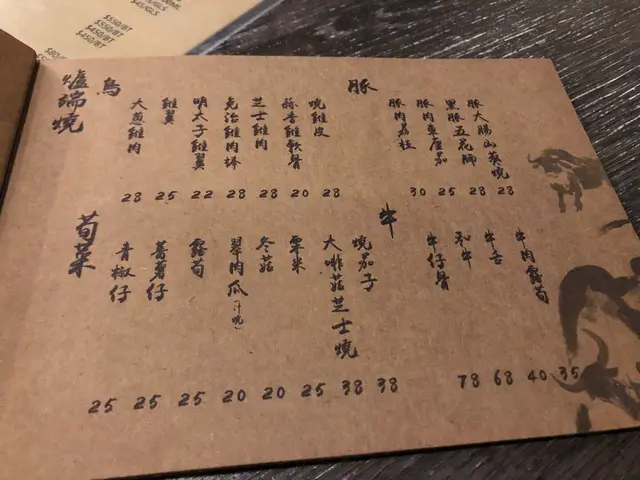 $45/GLS
$350/BT
$350/BT
$450/BT
爐端燒
鳥
大葱雞肉 28
雞翼 25
明太子雞翼 22
免治雞肉棒 28
芝士雞肉 28
蒜香雞軟骨 20
燒雞皮 28
豚
豚肉荔枝 30
豚肉車厘茄 25
黑豚五花腩 28
豚大腸山葵燒 28
荀菜
青椒仔 25
薯仔 25
露荀 25
翠肉瓜(汁燒) 20
冬菇 20
粟米 25
大啡菇芝士燒 38
燒茄子 38
牛
牛仔骨 78
和牛 68
牛舌 40
牛肉露荀 35